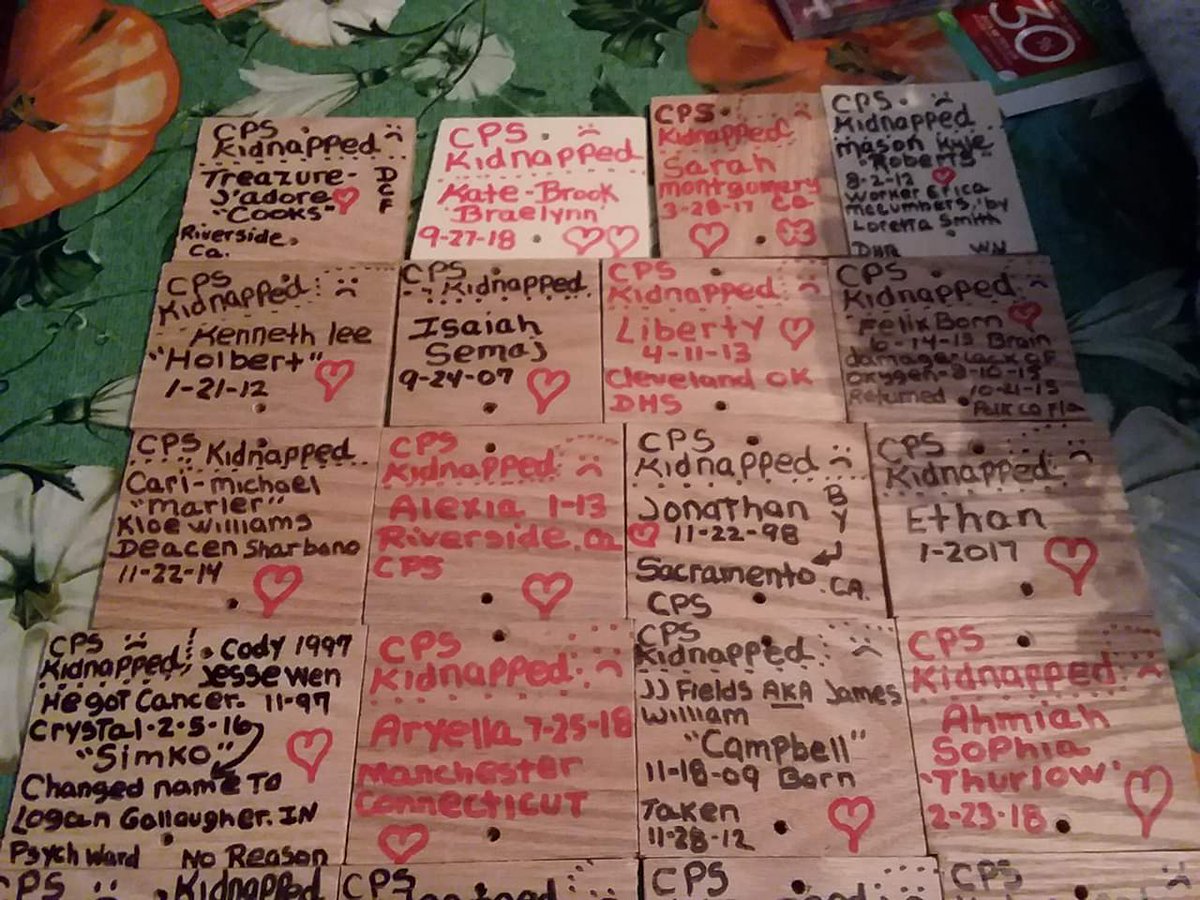 30%
CPS
Kidnapped
Treazure-
J'adore
"Cooks"
DCF
Riverside,
Ca.
CPS
Kidnapped
Kate-Brook
Braelynn
9-27-18
CPS
Kidnapped
Sarah
montgomery
3-28-17 Ca
CPS
Kidnapped
mason Kyle
"Roberts"
8-2-12
Worker Erica
McCumbers, by
Loretta Smith
DHR WV
CPS
Kidnapped
Kenneth lee
"Holbert"
1-21-12
CPS
Kidnapped
Isaiah
Semaj
9-24-07
CPS
Kidnapped
Liberty
4-11-13
Cleveland OK
DHS
CPS
Kidnapped
Felix Born
6-14-13 Brain
damage lack of
oxygen-8-10-13
Returned 10-21-15
Polk co Fla
CPS Kidnapped
Cari-michael
"marler"
Kloe Williams
Deacen Sharbono
11-22-14
CPS
Kidnapped
Alexia 1-13
Riverside, Ca
CPS
CPS
Kidnapped
Jonathan
11-22-98
BY
Sacramento, CA.
CPS
CPS
Kidnapped
Ethan
1-2017
CPS
Kidnapped
Cody 1997
Jesse Wen
He got Cancer. 11-97
Crystal. 2-5-16
"Simko"
Changed name To
Logan Gallaugher. IN
Psych Ward No Reason
CPS
Kidnapped
Aryella 7-25-18
Manchester
Connecticut
CPS
Kidnapped
JJ Fields AKA James
William
"Campbell"
11-18-09 Born
Taken
11-28-12
CPS
Kidnapped
Ahmiah
Sophia
"Thurlow"
2-23-18
CPS
Kidnapped
CPS
CPS
CPS